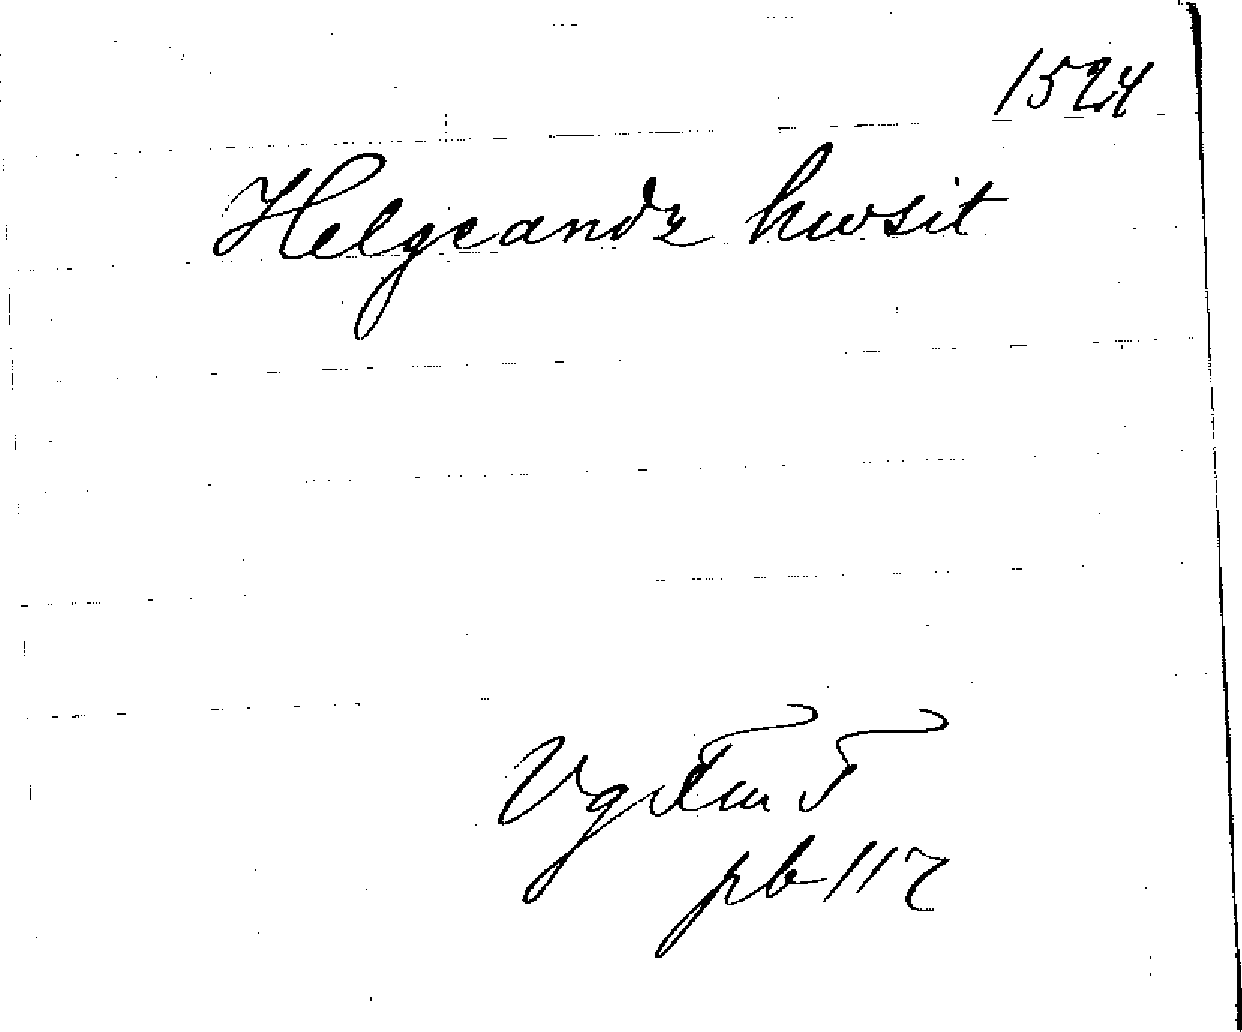 1524
Helgeandz hwsit
Vg Fm T
pb 117